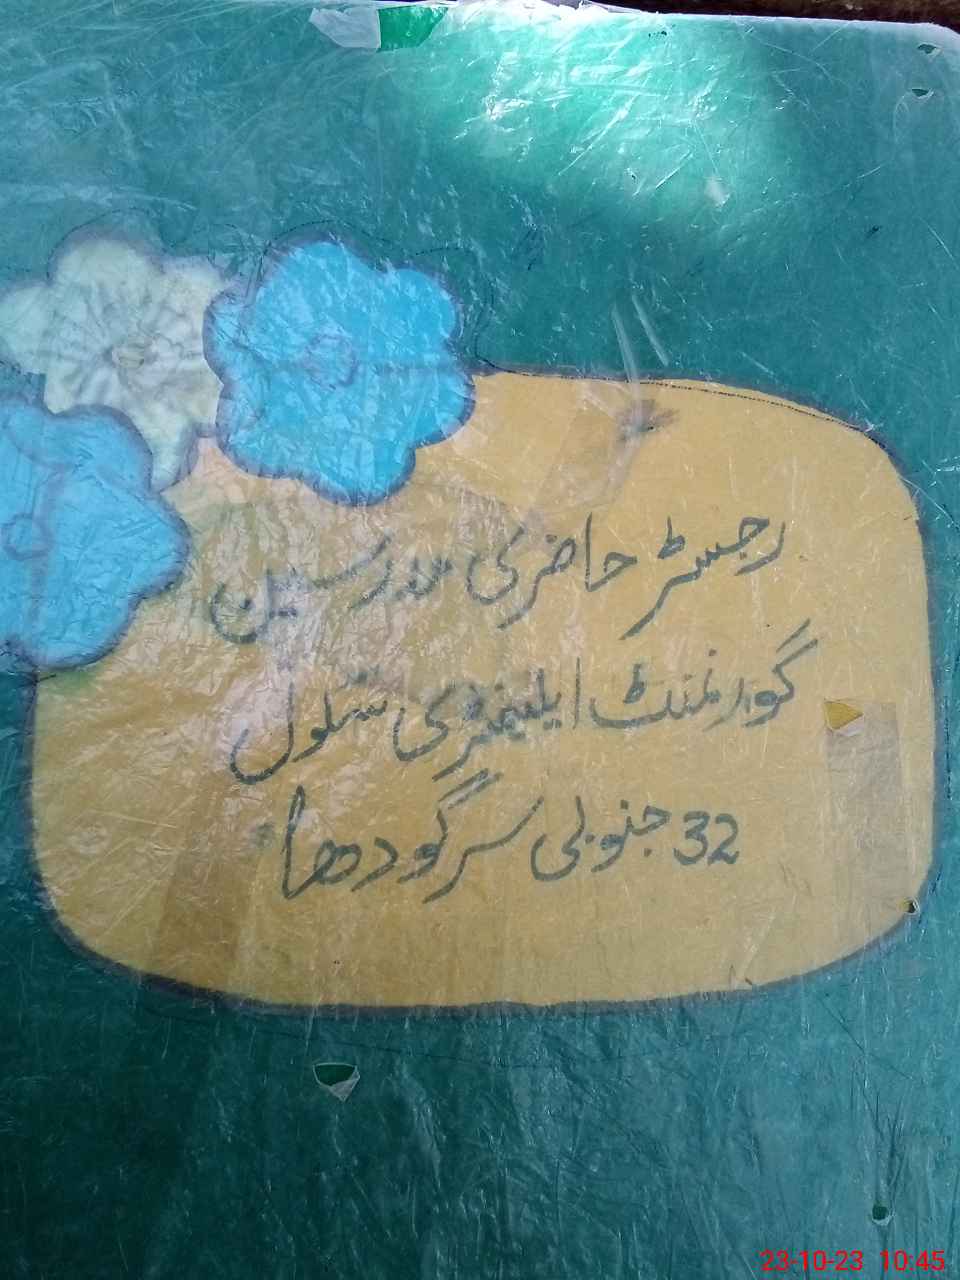 رجسٹر حاضری مدرسین
گورنمنٹ ایلیمنٹری سکول
32 جنوبی سرگودھا
23-10-23 10:45